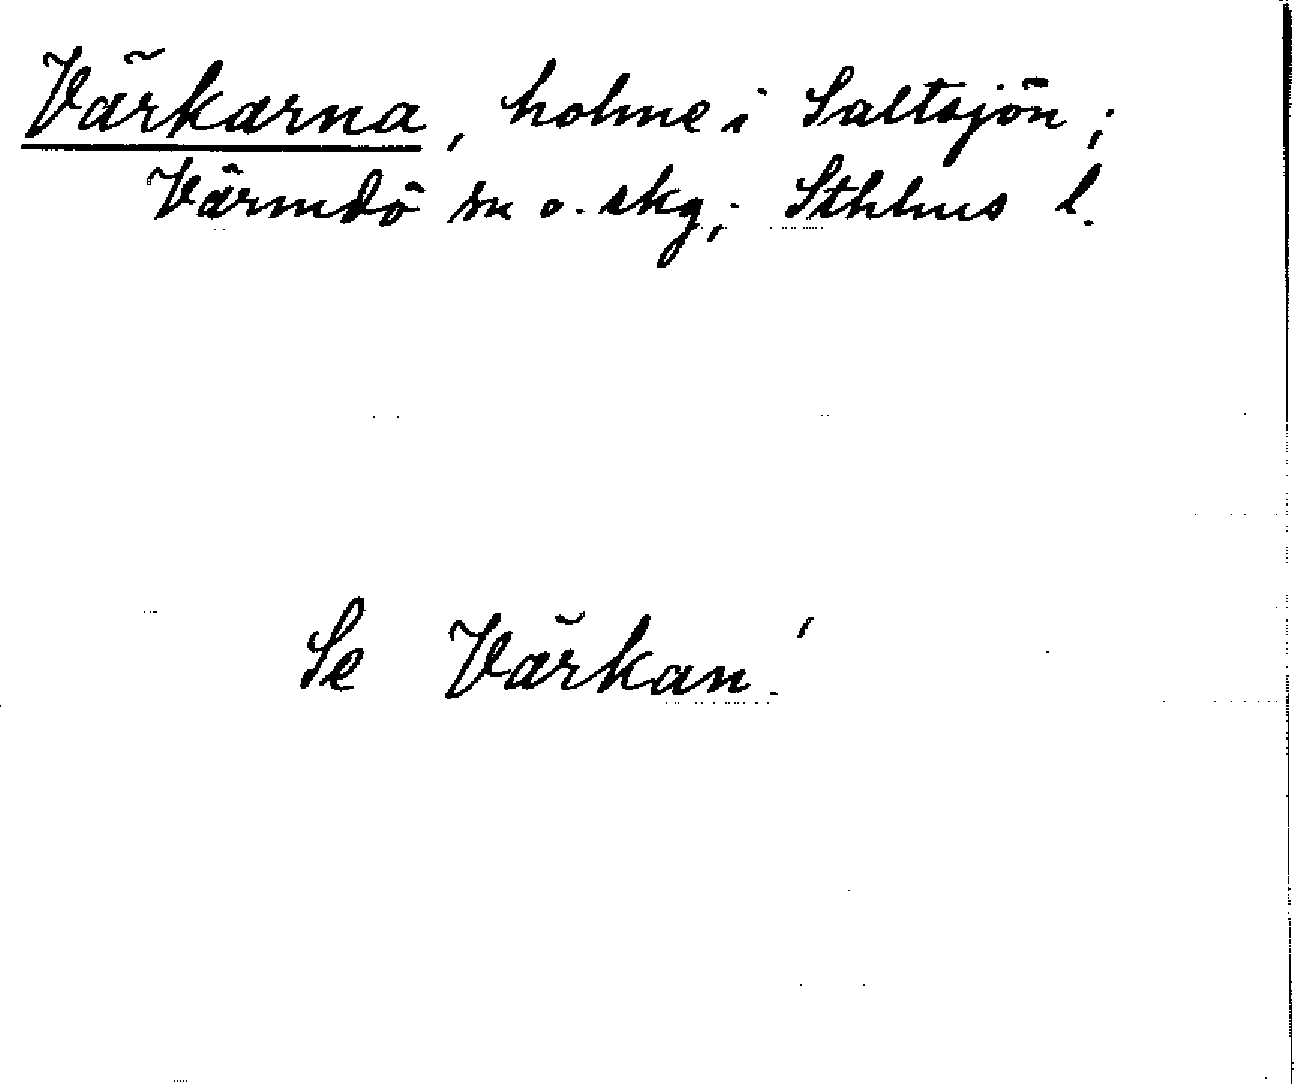 Värkarna, holme i Saltsjön;
Värmdö sn o. skg; Sthlms l.
Se Värkan!